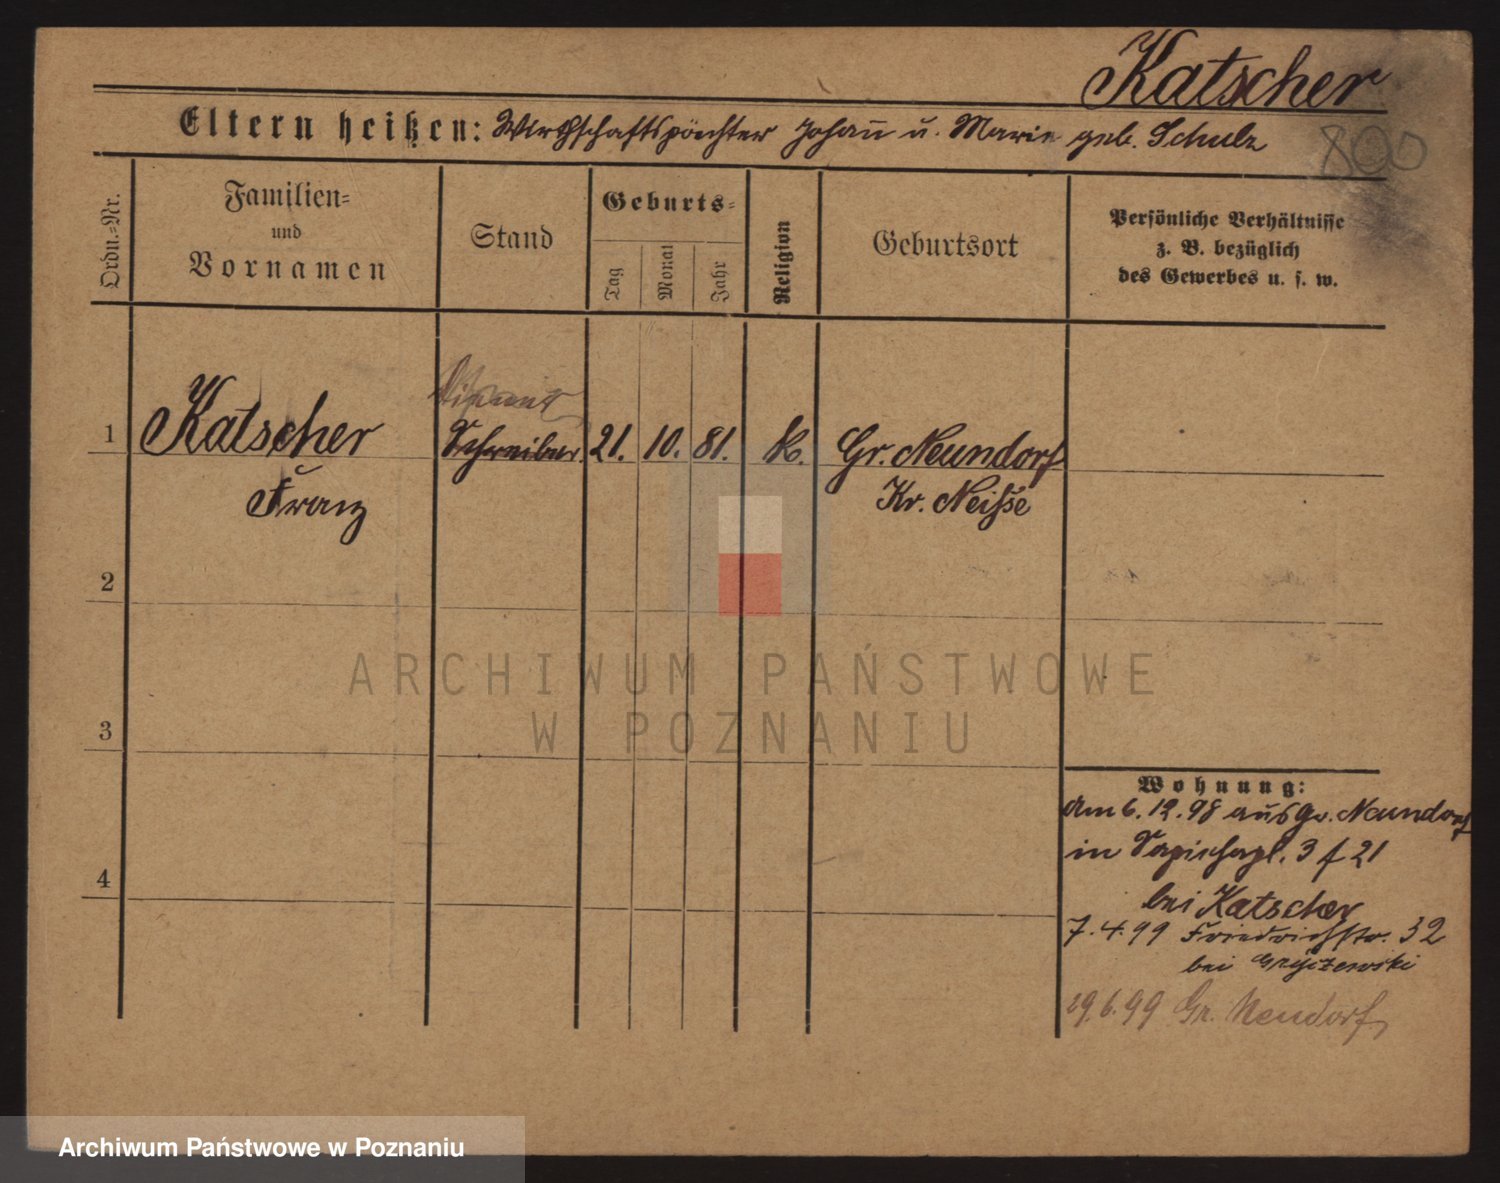 Katscher
800
Eltern heißen: Wirthschaftspächter Johañ u. Marie geb. Schulz
Ordn.=Nr.
Familien=
und
Vornamen
Stand
Geburts=
Tag
Monat
Jahr
Religion
Geburtsort
Persönliche Verhältnisse
z. B. bezüglich
des Gewerbes u. s. w.
1 Katscher Schreiber. 21. 10. 81. k. Gr. Neundorf
Franz Kr. Neisse
2
3
4
Wohnung:
am 6. 12. 98 aus Gr. Neundorf
in Sapiehapl. 3 f 21
bei Katscher
7. 4. 99 Friedrichstr. 32
bei
29. 6. 99 Gr. Neudorf
ARCHIWUM PAŃSTWOWE
W POZNANIU
Archiwum Państwowe w Poznaniu